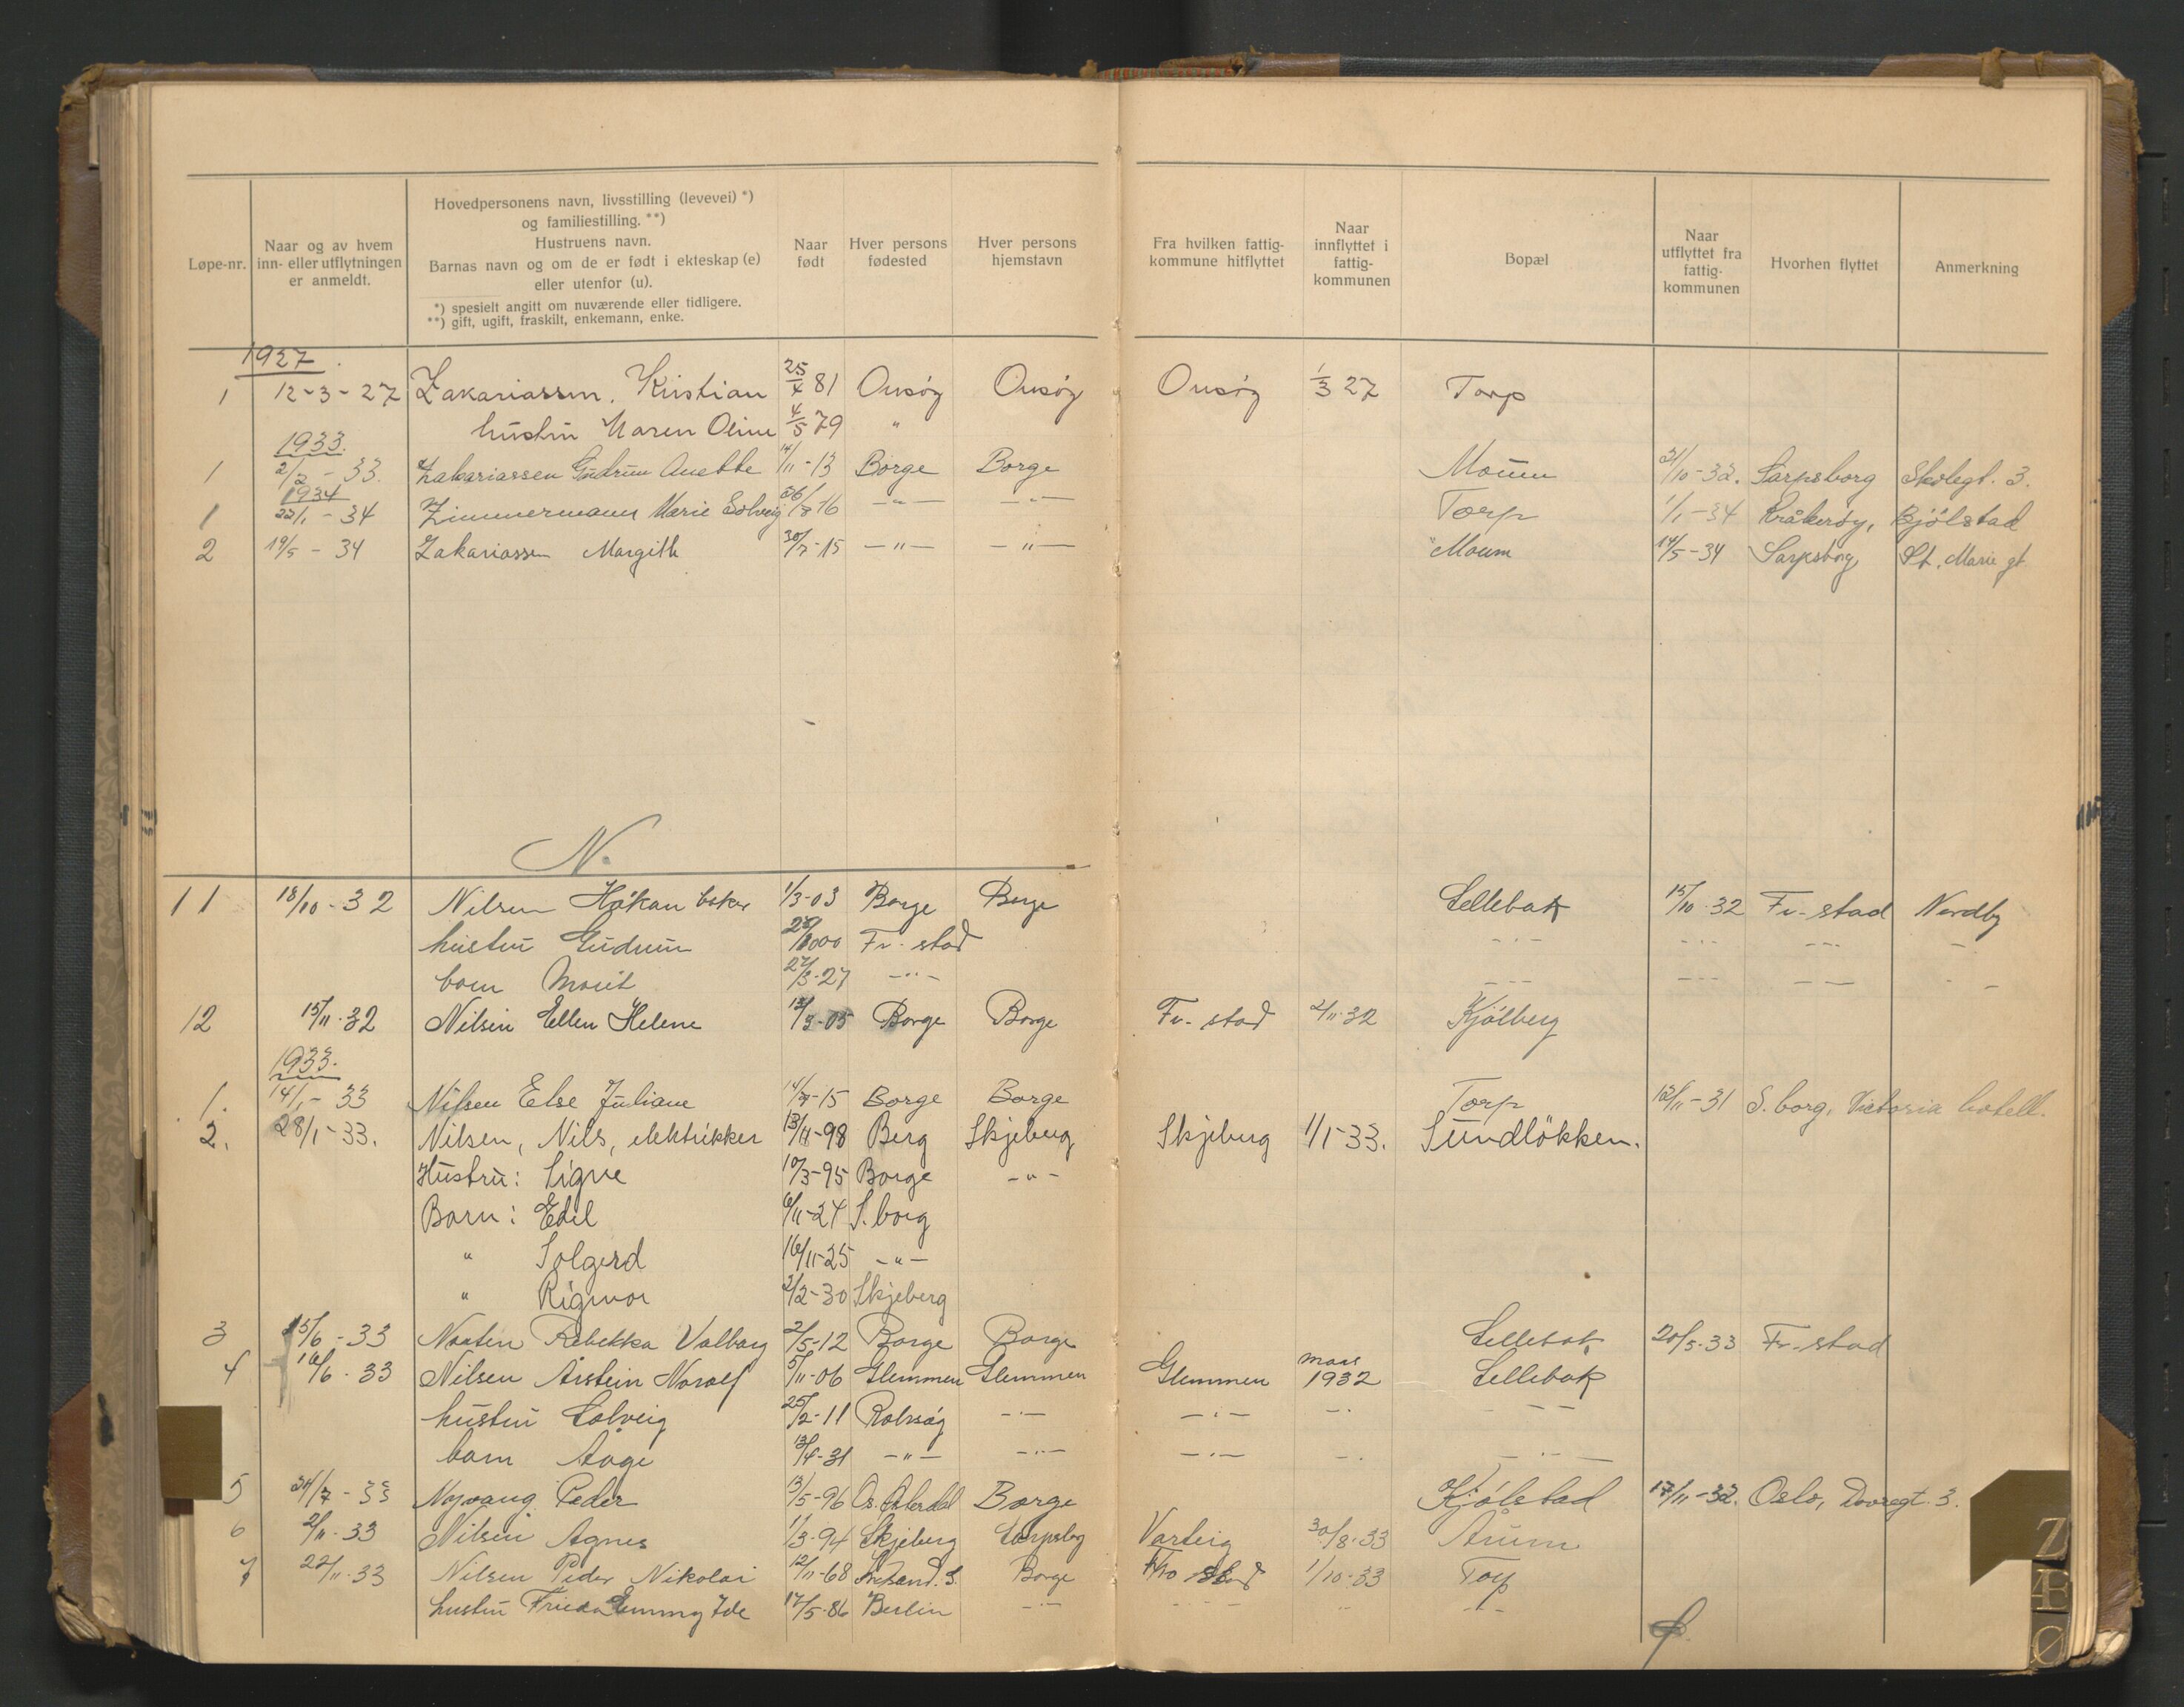 Løpe-nr. | Naar og av hvem inn- eller utflytningen er anmeldt. | Hovedpersonens navn, livsstilling (levevei) *) og familiestilling. **) Hustruens navn. Barnas navn og om de er født i ekteskap (e) eller utenfor (u). *) spesielt angitt om nuværende eller tidligere. **) gift, ugift, fraskilt, enkemann, enke. | Naar født | Hver persons fødested | Hver persons hjemstavn | Fra hvilken fattigkommune hitflyttet | Naar innflyttet i fattigkommunen | Bopæl | Naar utflyttet fra fattigkommunen | Hvorhen flyttet | Anmerkning
1927.
1 12-3-27 Zakariassen, Kristian 25/4 81 Onsøy Onsøy Onsøy 1/3 27 Torp
hustru Maren Oline 4/5 79 "
1933.
1 2/2-33. Zakariassen Gudrun Anette 14/11-13 Borge Borge Moum 31/10-32. Sarpsborg Skolegt. 3.
1934
1 22/1-34 Zimmermann Marie Solveig 16 -"- -"- Torp 1/1-34 Kråkerøy, Bjölstad
2 19/5-34 Zakariassen Margith 30/7-15 -"- -"- Moum 14/5-34 Sarpsborg St. Marie gt
N.
11 18/10-32 Nilsen Håkan baker 1/3-03 Borge Borge Sellebak 15/10-32 Fr.-stad Nordby
hustru Gudrun Fr.-stad -"- -"- -"- -
barn Marit 27/3-27 -"- -"- -"- -"- -
12 15/11-32 Nilsen Ellen Helene Borge Borge Fr.-stad 2/11-32 Kjölberg
1933.
1. 14/1-33 Nilsen Else Juliane 15 Borge Borge Torp 12/11-31 S.borg, Victoria hotell.
2. 28/1-33. Nilsen, Nils, elektrikker 98 Berg Skjeberg Skjeberg 1/1-33. Sundlökken.
Hustru: Signe 10/3-95 Borge -"-
Barn: Edel 6/11-24 S.borg
" Solgerd 16/11-25 -"-
" Rigmor 2/2-30 Skjeberg
3 15/6-33 Naaten Rebekka Valborg 2/5-12 Borge Borge Sellebak 20/5-33 Fr.-stad
4 16/6-33 Nilsen Arstein Norolf 5/11-06 Glemmen Glemmen Glemmen mars 1932 Sellebak
hustru Solveig 25/2-11 Rolvsøy -"- -"- -"- -"-
barn Aage 13/4-31 -"- -"- -"- -"- -"-
5 /7-33 Peder 13/5-96 Borge Kjölstad 17/11-32. Oslo, Dovregt. 3.
6 2/11-33 Nilsen Agnes 1/3-94 Skjeberg Sarpsbg Varteig 30/8-33 Årum
7 22/11-33 Nilsen Peder Nikolai 12/11-68 Krsand. S. Borge 1/10-33 Torp
hustru Frieda Emmy Ide 17/5-86 Berlin -"- -"- -"- -"-
Z
Æ
Ø